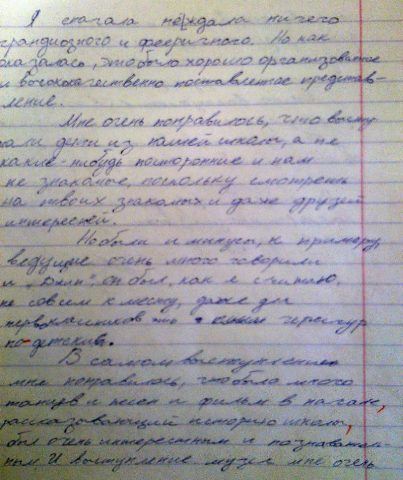 Я сначала не ждала ничего
грандиозного и фееричного. Но как
оказалось, это было хорошо организованое
и высококачественно поставленое представ-
ление.
Мне очень понравилось, что высту
пали дети из нашей школы, а не
какие-нибудь посторонние и нам
не знакомые, поскольку смотреть
на твоих знакомых и даже друзей
интересней.
Но были и минусы, к примеру,
ведущие очень много говорили
и он был, как я считаю,
не совсем к месту, даже для
первоклашников чересчур
по-детски.
В самом выступлении
мне понравилось, что было много
танцев и песен и фильм в начале,
рассказывающий историю школы,
был очень интересным и познаватель-
ным И выступление музея мне очень